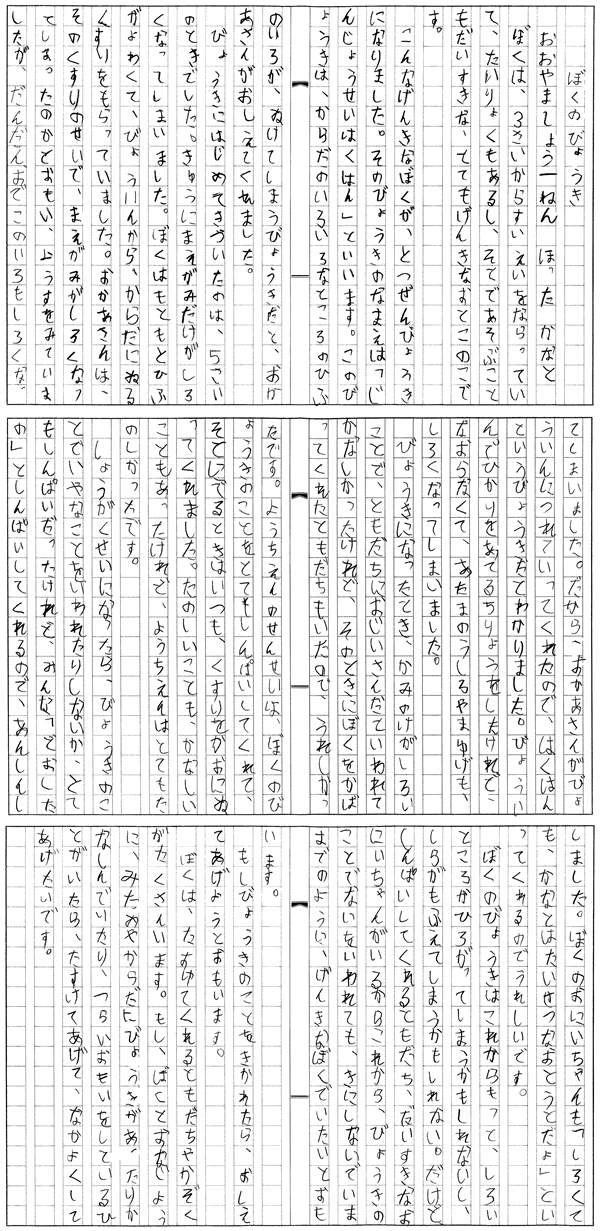 ぼくのびょうき
おおやましょう一ねん　ほった　かなと
ぼくは、3さいからすいえいをならってい
て、たいりょくもあるし、そとであそぶこと
もだいすきな、とてもげんきなおとこのこで
す。
こんなげんきなぼくが、とつぜんびょうき
になりました。そのびょうきのなまえは「じ
んじょうせいはくはん」といいます。このび
ょうきは、からだのいろいろなところのひふ
のいろが、ぬけてしまうびょうきだと、おか
あさんがおしえてくれました。
びょうきにはじめてきづいたのは、5さい
のときでした。きゅうにまえがみだけがしろ
くなってしまいました。ぼくはもともとひふ
がよわくて、びょういんから、からだにぬる
くすりをもらっていました。おかあさんは、
そのくすりのせいで、まえがみがしろくなっ
てしまったのかとおもい、ようすをみていま
したが、だんだんおでこのいろもしろくなっ
てしまいました。だから、おかあさんがびょ
ういんにつれていってくれたので、はくはん
というびょうきだとわかりました。びょうい
んでひかりをあてるちりょうをしたけれど、
なおらなくて、あたまのうしろやまゆげも、
しろくなってしまいました。
びょうきになったとき、かみのけがしろい
ことで、ともだちにおじいさんだといわれて
かなしかったけれど、そのときにぼくをかば
ってくれたともだちもいたので、うれしかっ
たです。ようちえんのせんせいは、ぼくのび
ょうきのことをとてもしんぱいしてくれて、
そとにでるときはいつも、くすりをかおにぬ
ってくれました。たのしいことも、かなしい
こともあったけれど、ようちえんはとてもた
のしかったです。
しょうがくせいになったら、びょうきのこ
とでいやなことをいわれたりしないか、とて
もしんぱいだったけれど、みんな「どおした
の」としんぱいしてくれるので、あんしんし
しました。ぼくのおにいちゃんも「しろくて
も、かなとはたいせつなおとうとだよ」とい
ってくれるのでうれしいです。
ぼくのびょうきはこれからもっと、しろい
ところがひろがってしまうかもしれないし、
しらがもふえてしまうかもしれない。だけど
しんぱいしてくれるともだち、だいすきなお
にいちゃんがいるからこれから、びょうきの
ことでないをいわれても、きにしないでいま
までのように、げんきなぼくでいたいとおも
います。
もしびょうきのことをきかれたら、おしえ
てあげようとおもいます。
ぼくは、たすけてくれるともだちやかぞく
がたくさんいます。もし、ぼくとおなじよう
に、みためやからだにびょうきがあったりか
なしんでいたり、つらいおもいをしているひ
とがいたら、たすけてあげて、なかよくして
あげたいです。